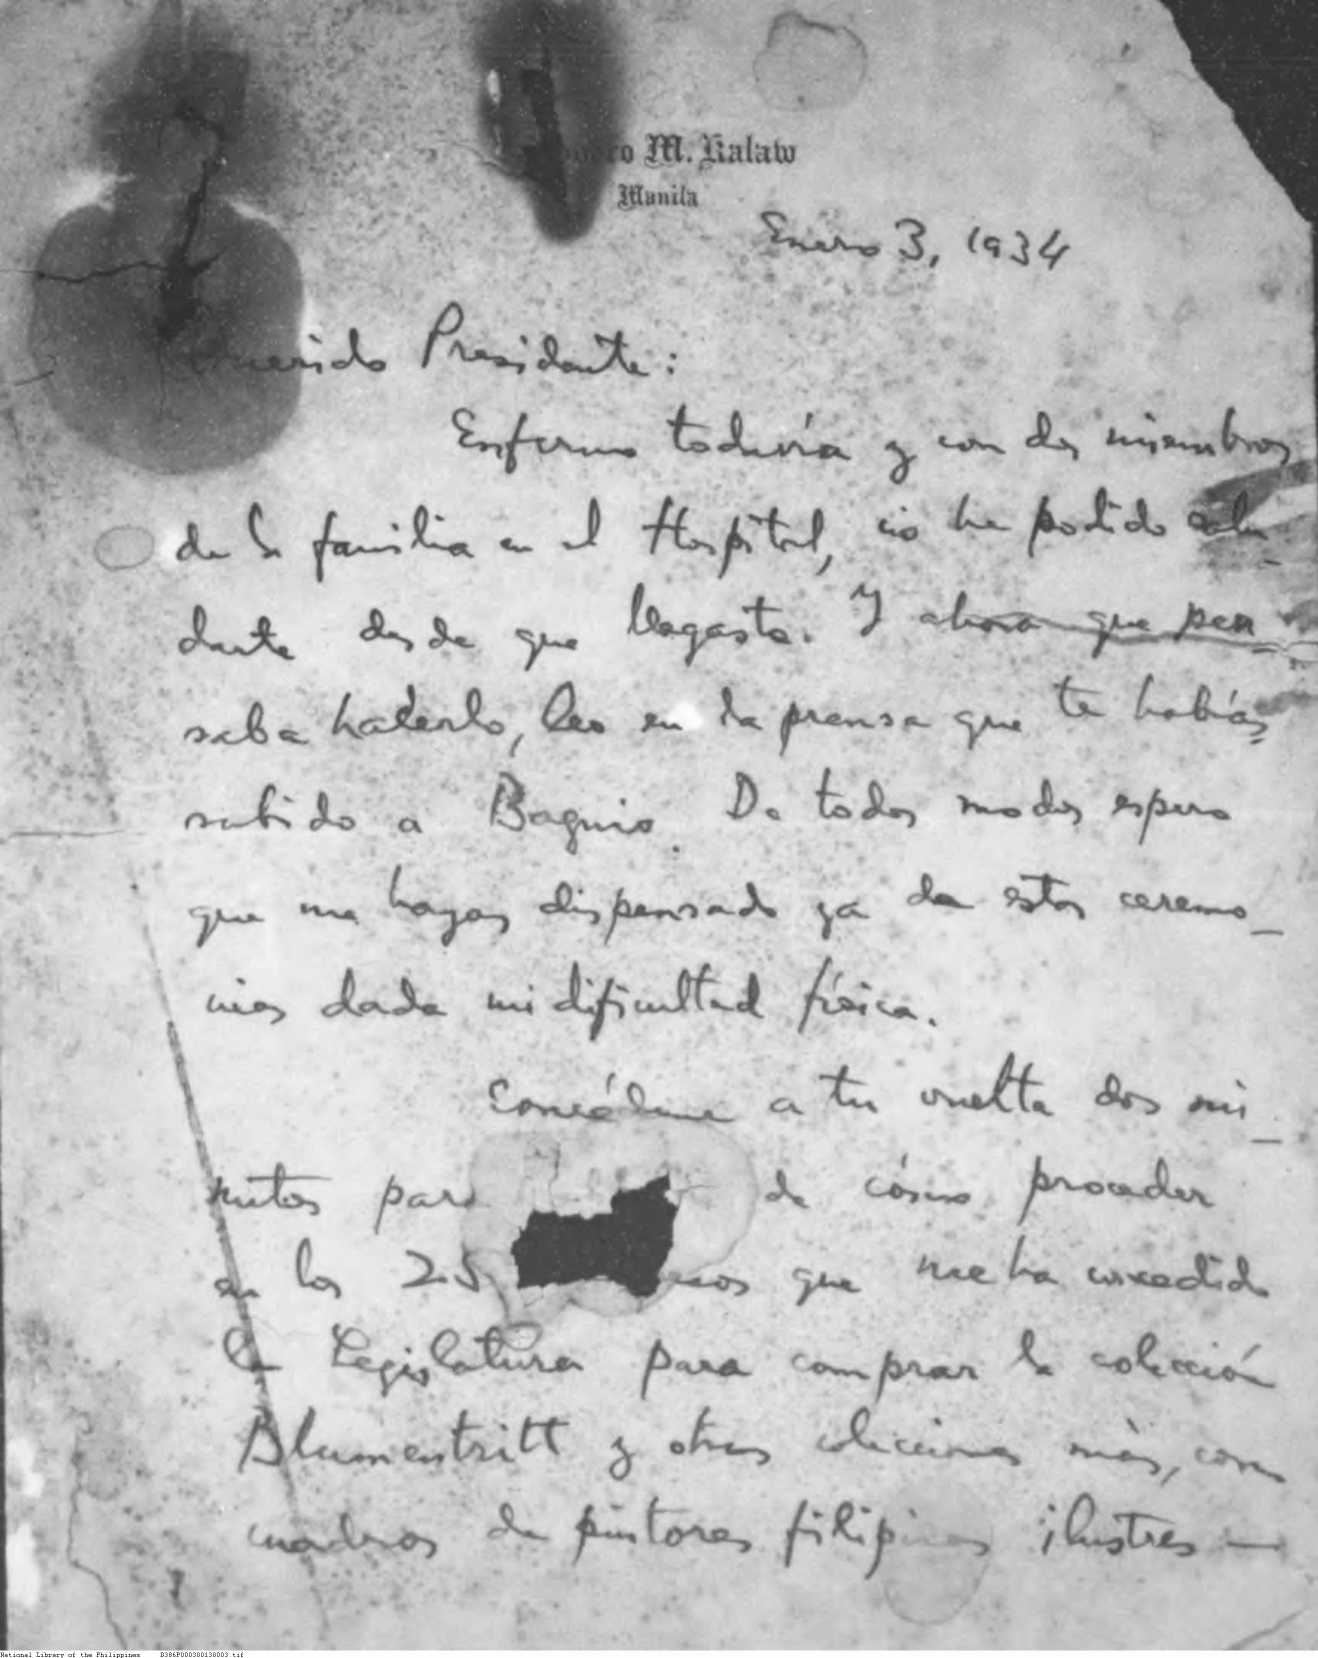 M. Kalaw
Manila
Enero 3, 1934
Querido Presidente:
Enfermo todavía y con dos miembros
de la familia en el Hospital, no he podido salu_
darte desde que llegaste. Y ahora que pen
saba hacerlo, leo en la prensa que te habías
subido a Baguio. De todos modos espero
que me hayas dispensado ya de estas ceremo_
nias dada mi dificultad física.
Concédeme a tu vuelta dos mi_
nutos para de cómo proceder
en los 25 que me ha concedido
la Legislatura para comprar la colección
Blumentritt y otras colecciones más, como
cuadros de pintores filipinos ilustres —
National Library of the Philippines B386P000300138003.tif